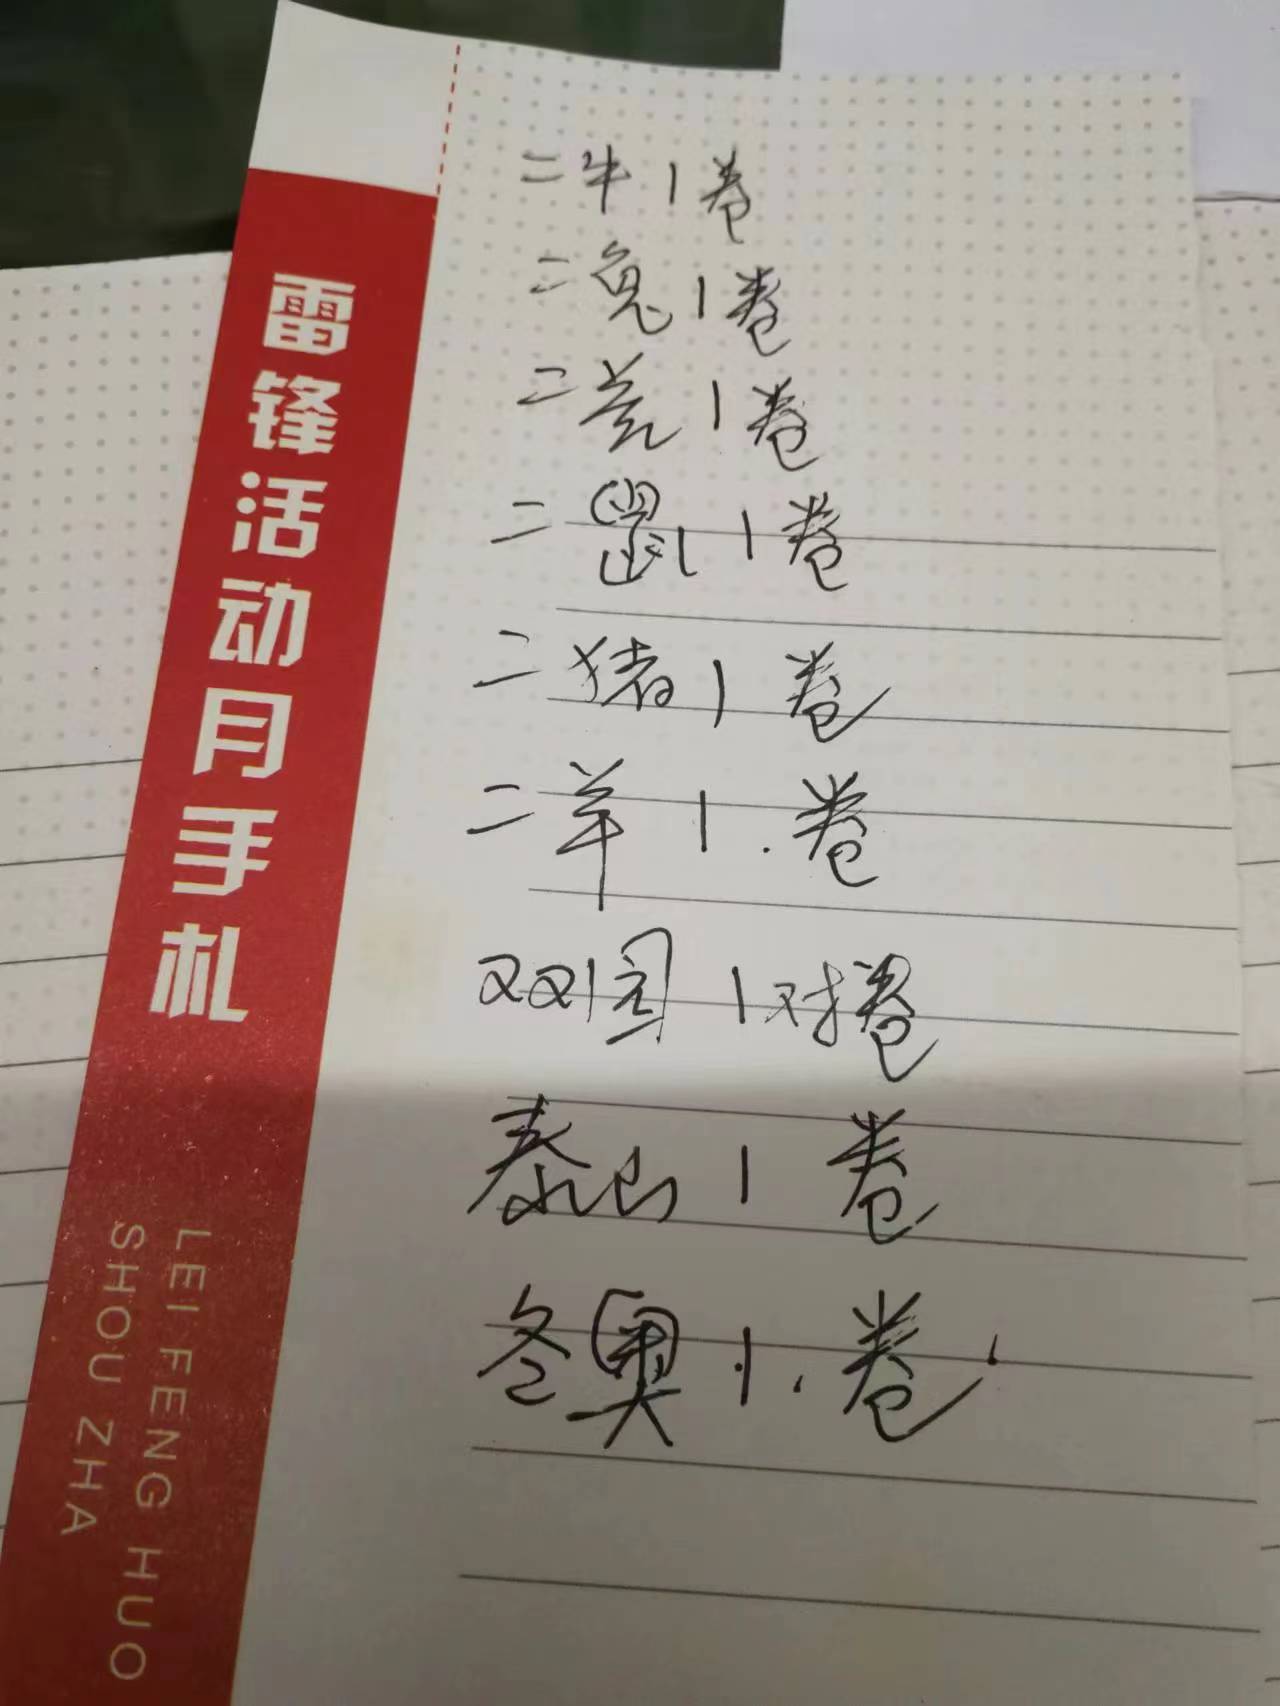 雷锋活动月手札
LEI FENG HUO
SHOU ZHA
二牛1卷
二兔1卷
二羌1卷
二鼠1卷
二猪1卷
二羊1.卷
双国1对卷
泰山1卷
冬奥1.卷